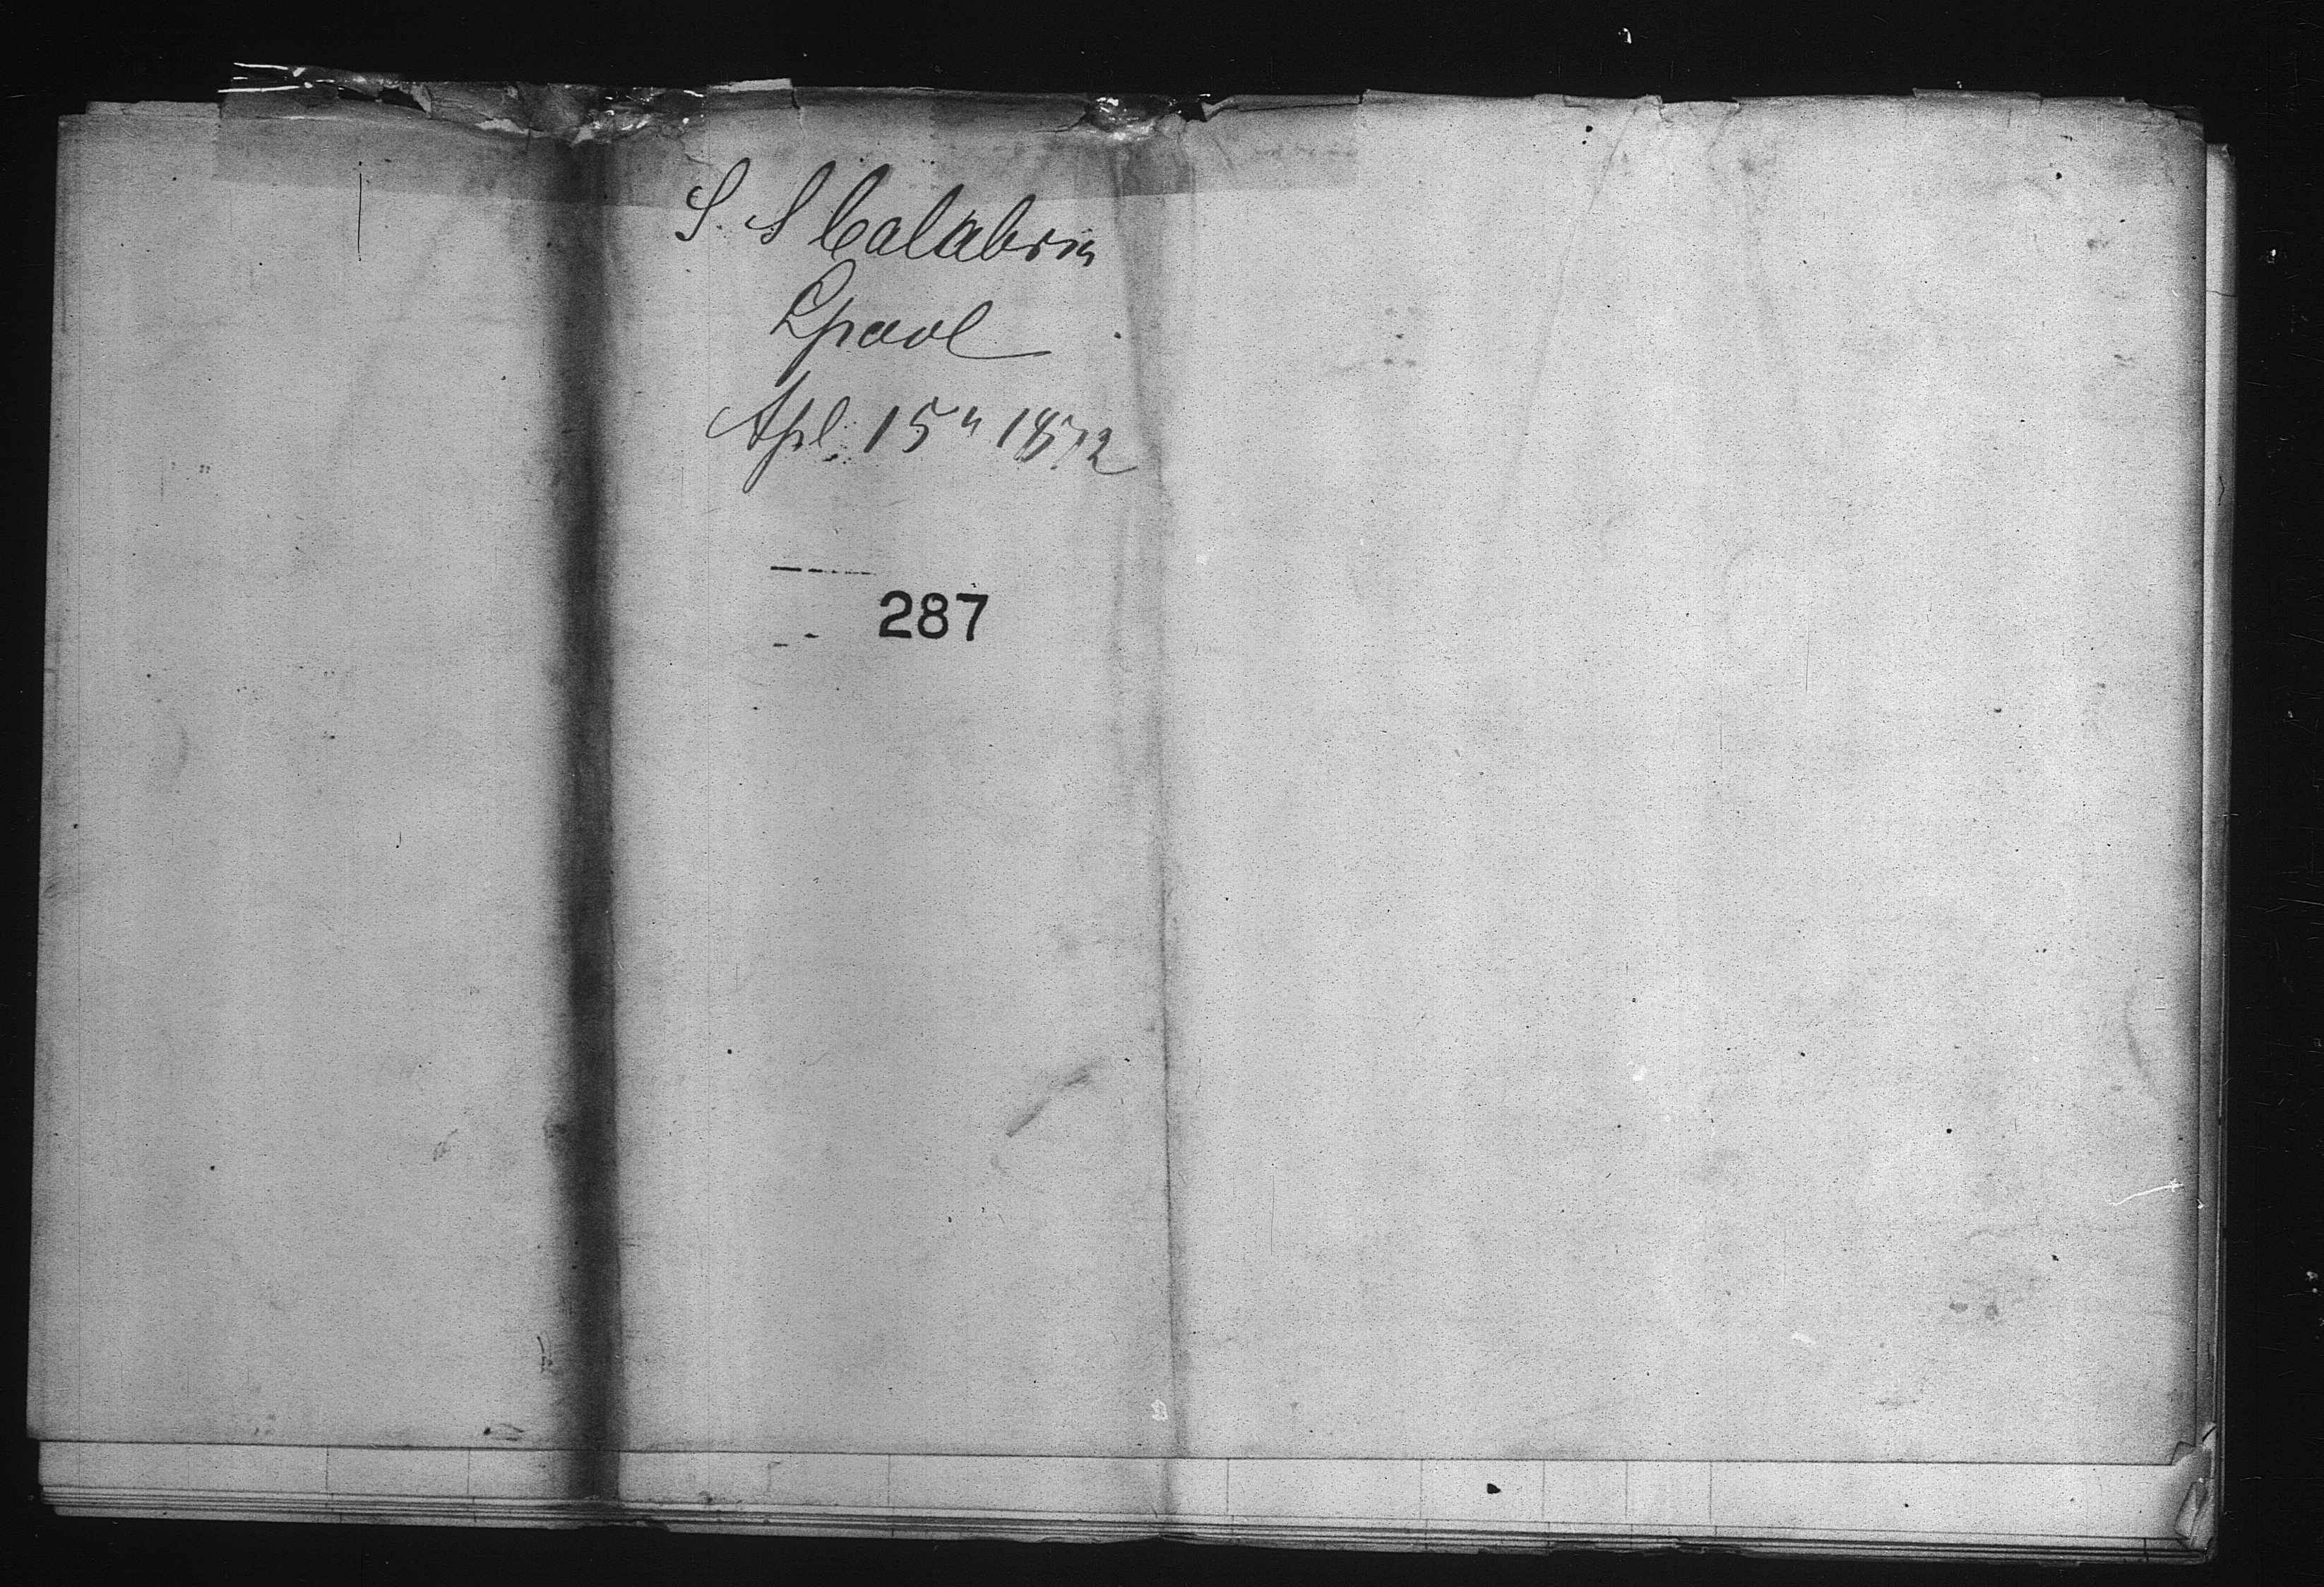 S. S Calabria
Lpool
Apl. 15" 1872
287